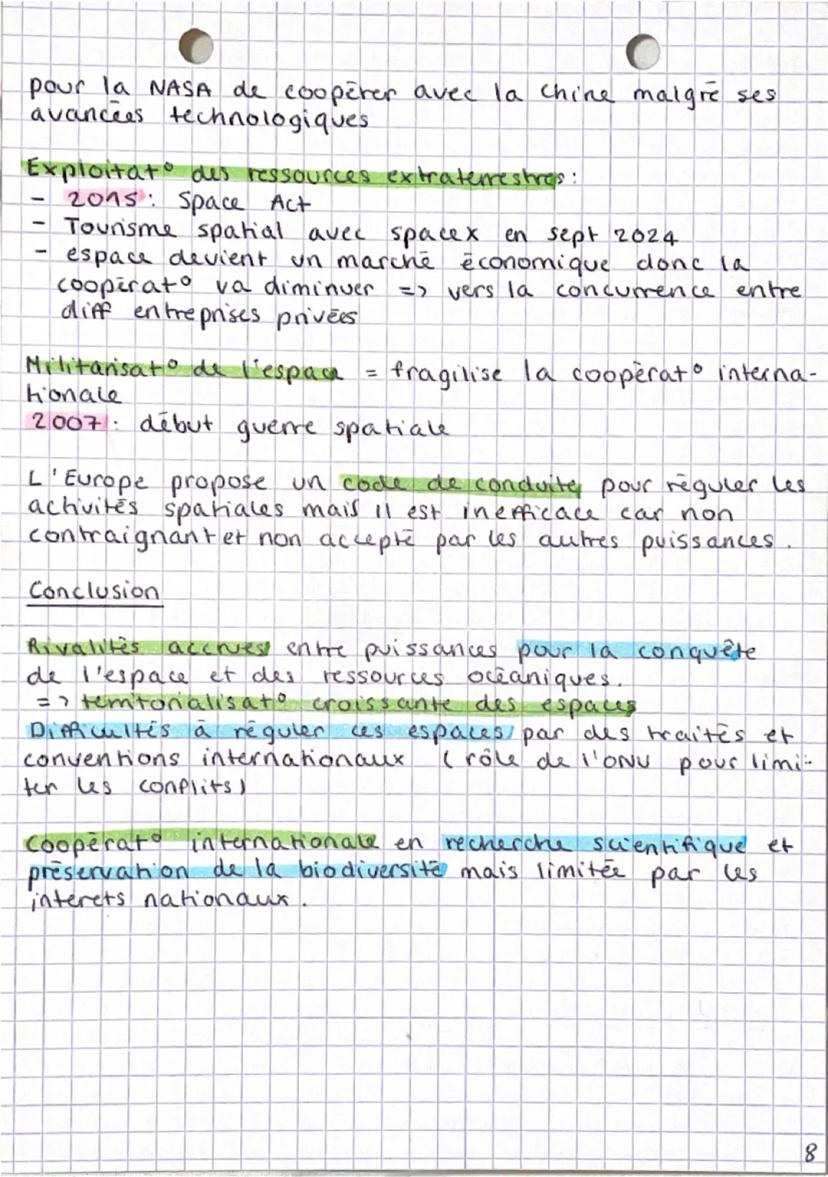 pour la NASA de coopérer avec la Chine malgré ses
avancées technologiques
Exploitat° des ressources extraterrestres :
- 2015 : Space Act
- Tourisme spatial avec spacex en sept 2024
- espace devient un marché économique donc la
coopérat° va diminuer => vers la concurrence entre
diff entreprises privées
Militarisat° de l'espace = fragilise la coopérat° interna-
tionale
2007 : début guerre spatiale
L'Europe propose un code de conduite pour réguler les
activités spatiales mais il est inefficace car non
contraignant et non accepté par les autres puissances.
Conclusion
Rivalités accrues entre puissances pour la conquête
de l'espace et des ressources océaniques.
=> territorialisat° croissante des espaces
Difficultés à réguler ces espaces par des traités et
conventions internationaux (rôle de l'ONU pour limi-
ter les conflits)
Coopérat° internationale en recherche scientifique et
préservation de la biodiversité mais limitée par les
interets nationaux.
8